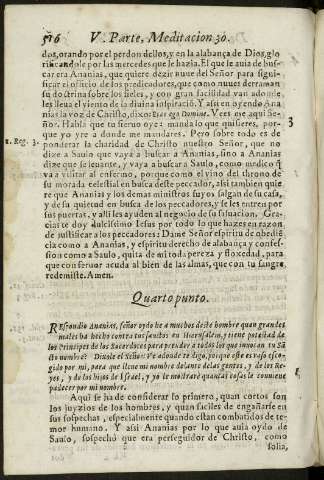 576 V. Parte, Meditacion 30.
dos, orando por el perdon dellos, y en la alabança de Dios, glo
rificandole por las mercedes que le hazia. El que le auia de bus-
car era Ananias, que quiere dezir nuue del Señor para signi-
ficar el officio de los predicadores, que como nuues derraman
su doctrina sobre los fieles, y con gran facilidad van adonde
les lleua el viento de la diuina inspiració. Y assi en oyendo Ana
nias la voz de Christo, dixo: Ecce ego Domine. Veys aqui Se-
ñor. Habla que tu sieruo oye: manda lo que quisieres, por-
que yo yre a donde me mandares. Pero sobre todo es de
1. Reg. 3.
ponderar la charidad de Christo nuestro Señor, que no
dize a Saulo que vaya a buscar a Ananias, sino a Ananias
dize que se leuante, y vaya a buscar a Saulo, como medico q̃
va a visitar al enfermo, porque como el vino del throno de
su morada celestial en busca deste peccador, assi tambien quie
re que Ananias y los demas ministros suyos salgan de su casa,
y de su quietud en busca de los peccadores, y se les entren por
sus puertas, y alli les ayuden al negocio de su saluacion. Gra-
cias te doy dulcissimo Iesus por todo lo que hazes en razon
de iustificar a los peccadores: Dame Señor espiritu de obediē
cia como a Ananias, y espiritu de alabança y confes-
sion como a Saulo, quita de mi toda pereza y floxedad, para
que con feruor acuda al bien de las almas, que con tu sangre
redemiste. Amen.
Quarto punto.
RESpondio Ananias, señor oydo he a muchos deste hombre quan grandes
males ha hecho contra tus sanctos en Hierusalem, y tiene potestad de
los Principes de los Sacerdotes para prender a todos los que inuocan tu Sā
cto nombre? Dixole el Señor: Ve adonde te digo, porque este es vaso esco-
gido por mi, para que lleue mi nombre delante de las gentes, y de los Re-
yes, y de los hijos de Israel, y yo le mostraré quantas cosas le conuiene
padecer por mi nombre.
Aqui se ha de considerar lo primero, quan cortos son
los juyzios de los hombres, y quan faciles de engañarse en
sus sospechas, especialmente quando estan combatidos de te-
mor humano. Y assi Ananias por lo que auia oydo de
Saulo, sospechó que era perseguidor de Christo, como
solia,